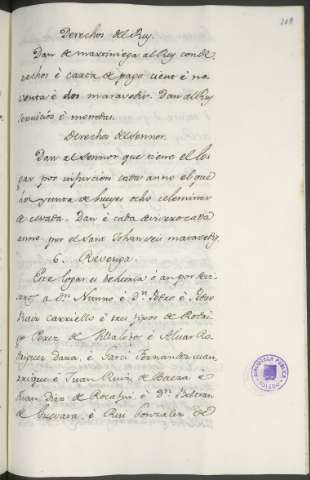 218
Derechos del Rey.
Dan de martiniega al Rey con de
rechos è carta de pago cient è no
venta è dos maravedis. Dan al Rey
servicios è monedas.
Derechos del Sennor.
Dan al Sennor que tiene el lo
gar por infurcion cada anno el que
ha yunta de bueys ocho celemines
de cevada. Dan è cada
anno por el Sant Johan seis maravedis
6. Revenga.
Este logar es behetria è an por devi
seros a Dn. Nunno è Dn. Pedro è Pedro
Ruiz Carriello è sus fijos de Rodri
go Perez de Villalobos è Alvar Ro
driguez Daza, è Garci Ferrandez Man
rrique è Juan Ruiz de Baeza è
Juan Diaz de Rocafuy è Dn. Beltran
de Guevara, è Rui Gonzalez de
BIBLIOTECA PUBLICA